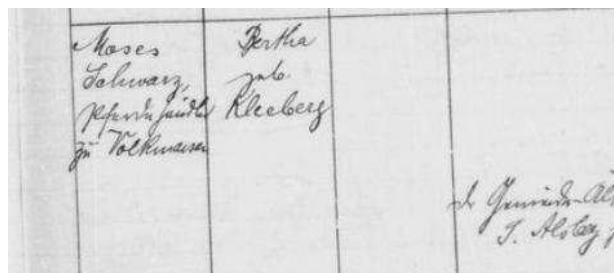 Moses
Schwarz,
Pferdehändler
zu Volkmarsen
Bertha
geb.
Kleeberg
Gemeinde-Äl
J. Alsberg